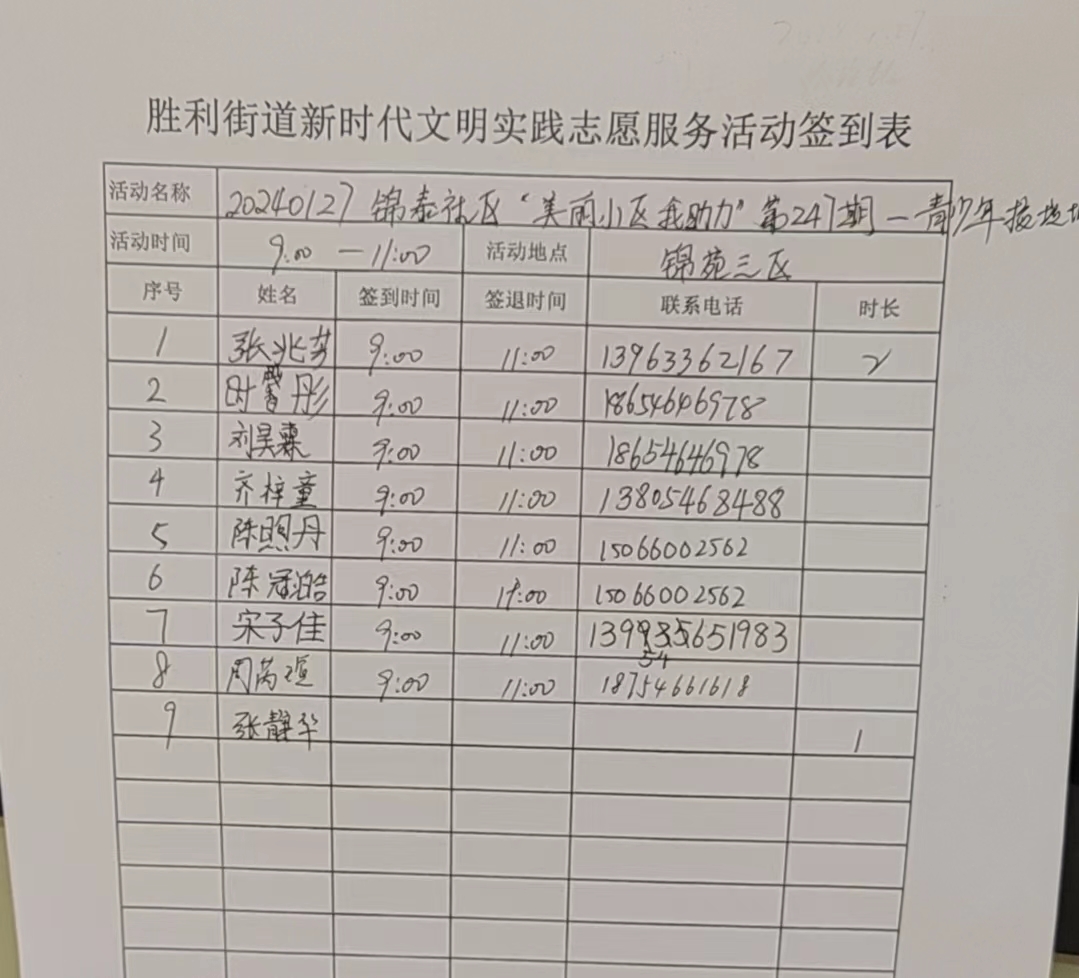 胜利街道新时代文明实践志愿服务活动签到表
活动名称 20240127 锦泰社区“美丽小区我助力”第247期—青少年
活动时间 9:00 —11:00 活动地点 锦苑三区
序号 姓名 签到时间 签退时间 联系电话 时长
1 张兆芳 9:00 11:00 13963362167 2
2 时 彤 9:00 11:00 18654646978
3 刘昊霖 9:00 11:00 18654646978
4 齐梓童 9:00 11:00 13805468488
5 陈照丹 9:00 11:00 15066002562
6 陈冠皓 9:00 11:00 15066002562
7 宋子佳 9:00 11:00
8 周芮瑄 9:00 11:00 18754661618
9 张静华 1